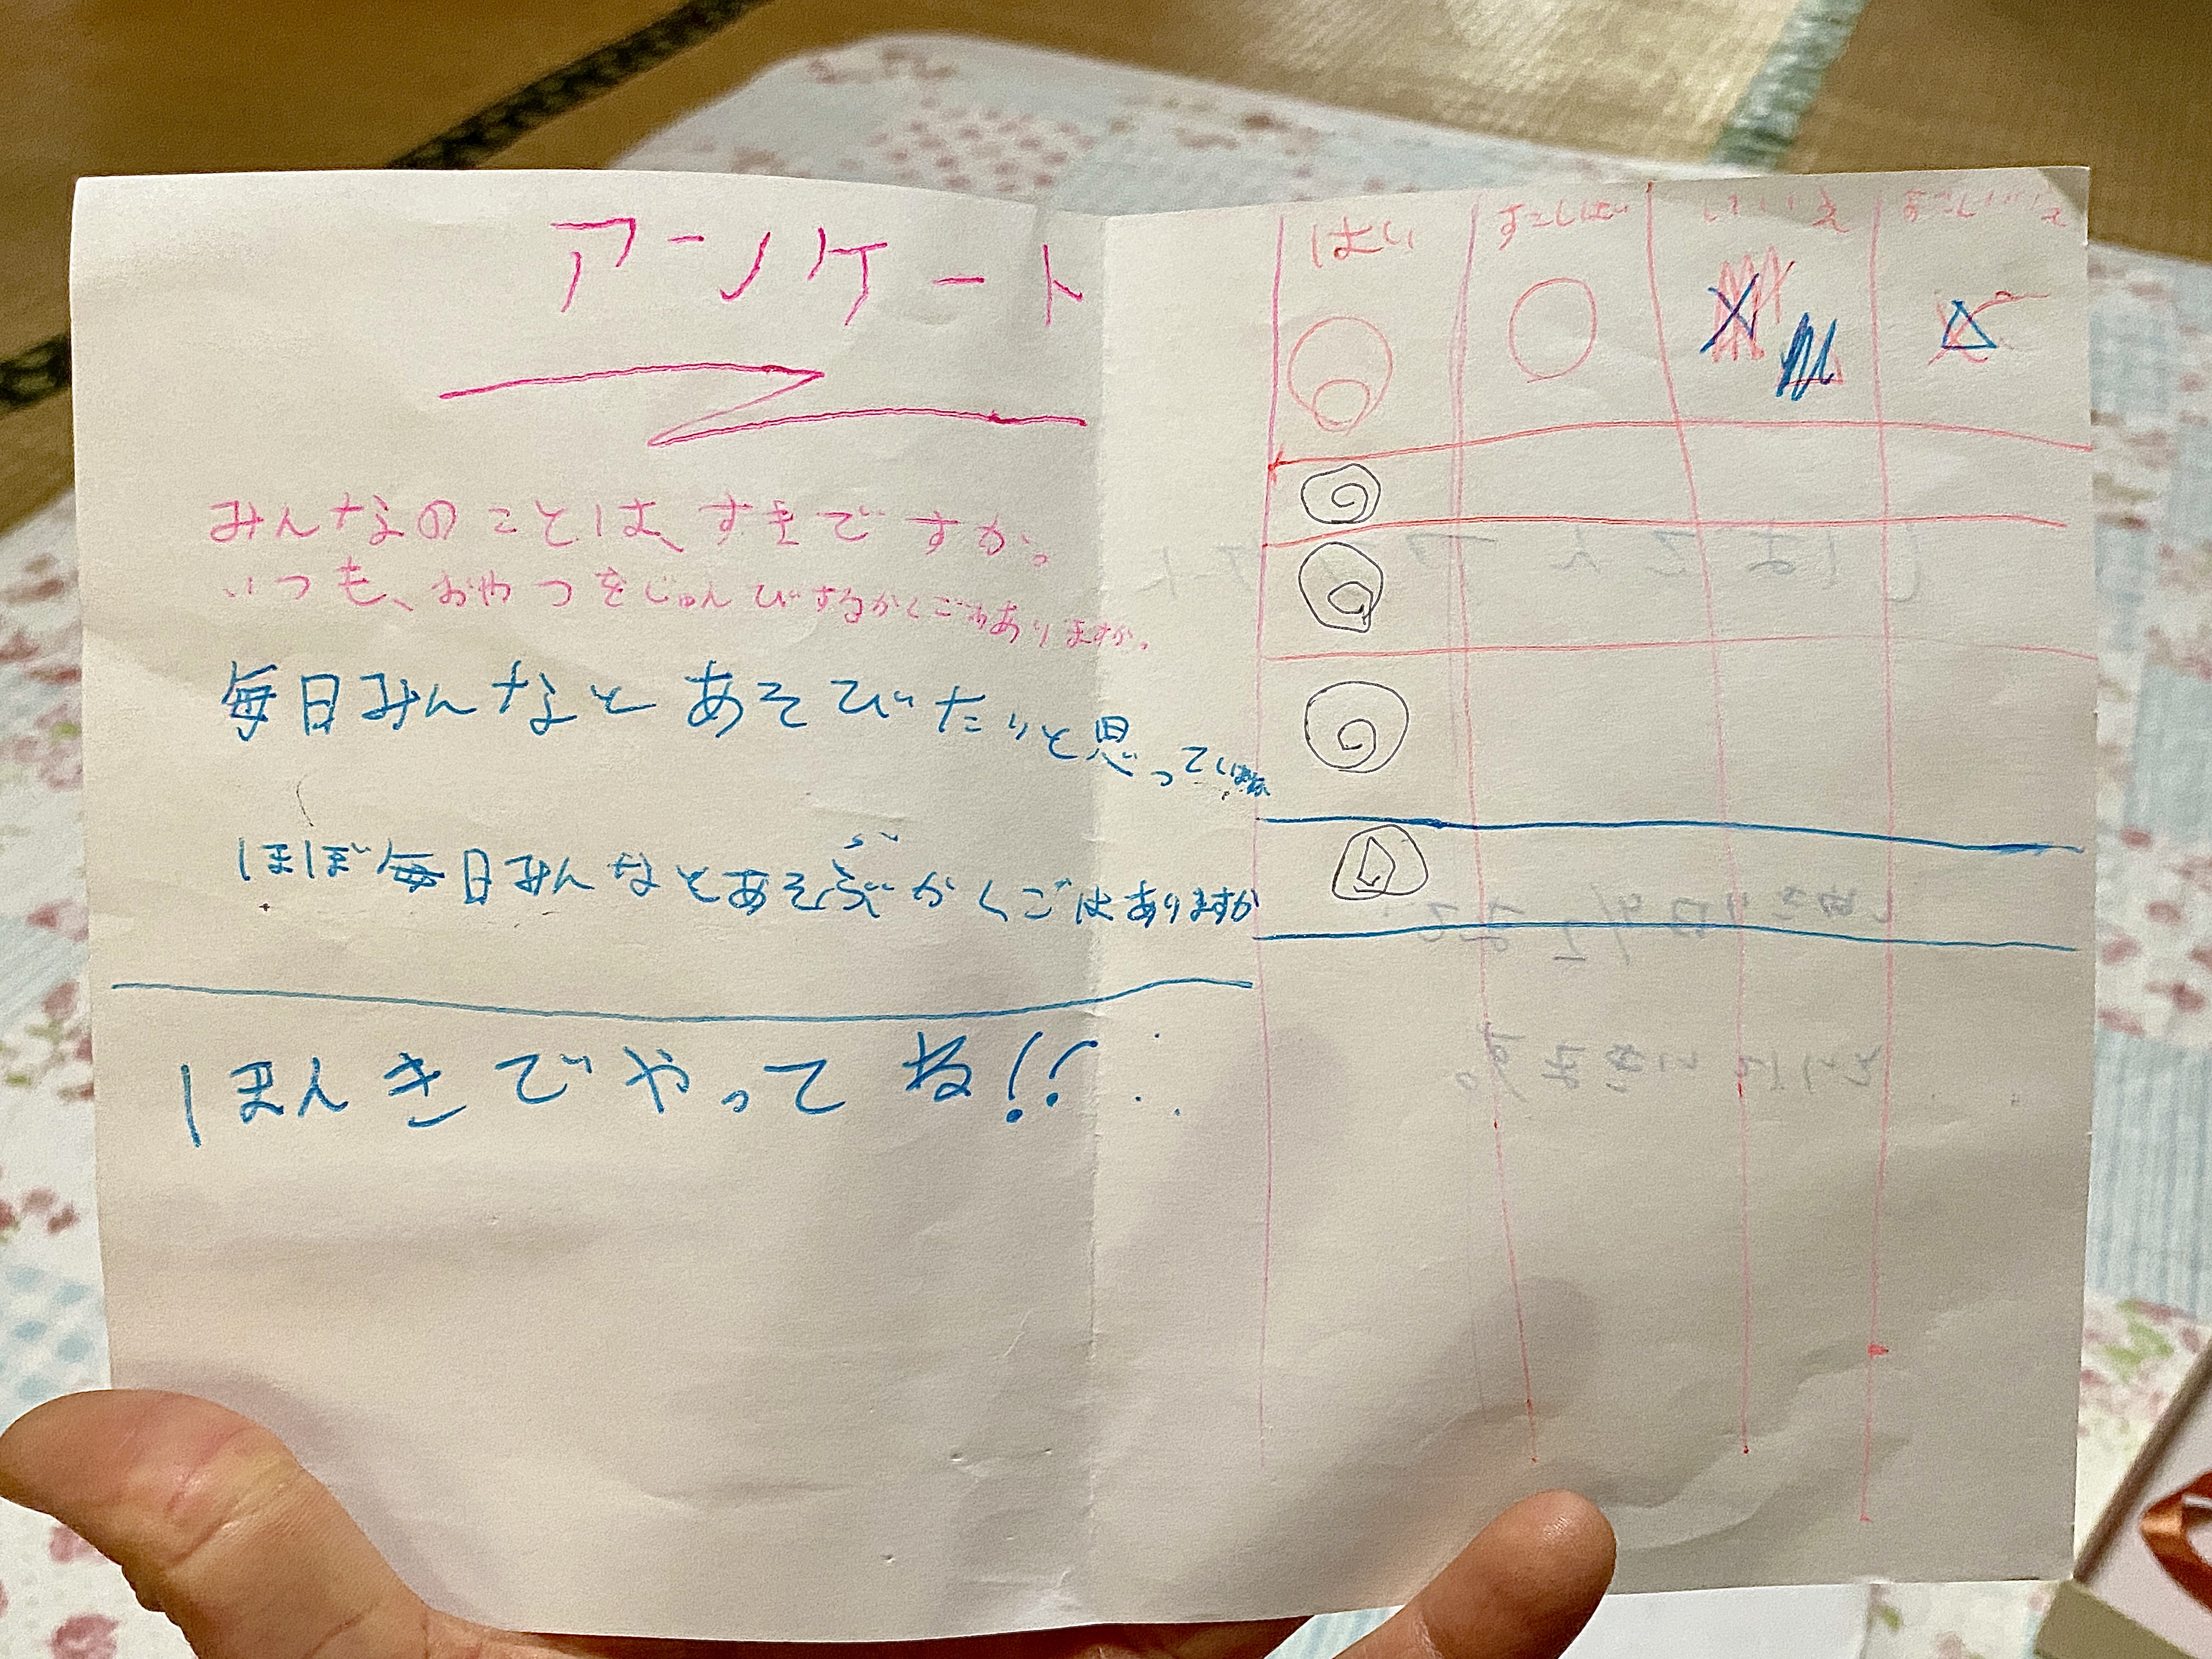 アンケート
はい すこしはい いいえ すこしいいえ
みんなのことは、すきですか。
いつも、おやつをじゅんびするかくごわありますか。
毎日みんなとあそびたいと思って
ほぼ毎日みんなとあそぶかくごはありますか
ほんきでやってね!!